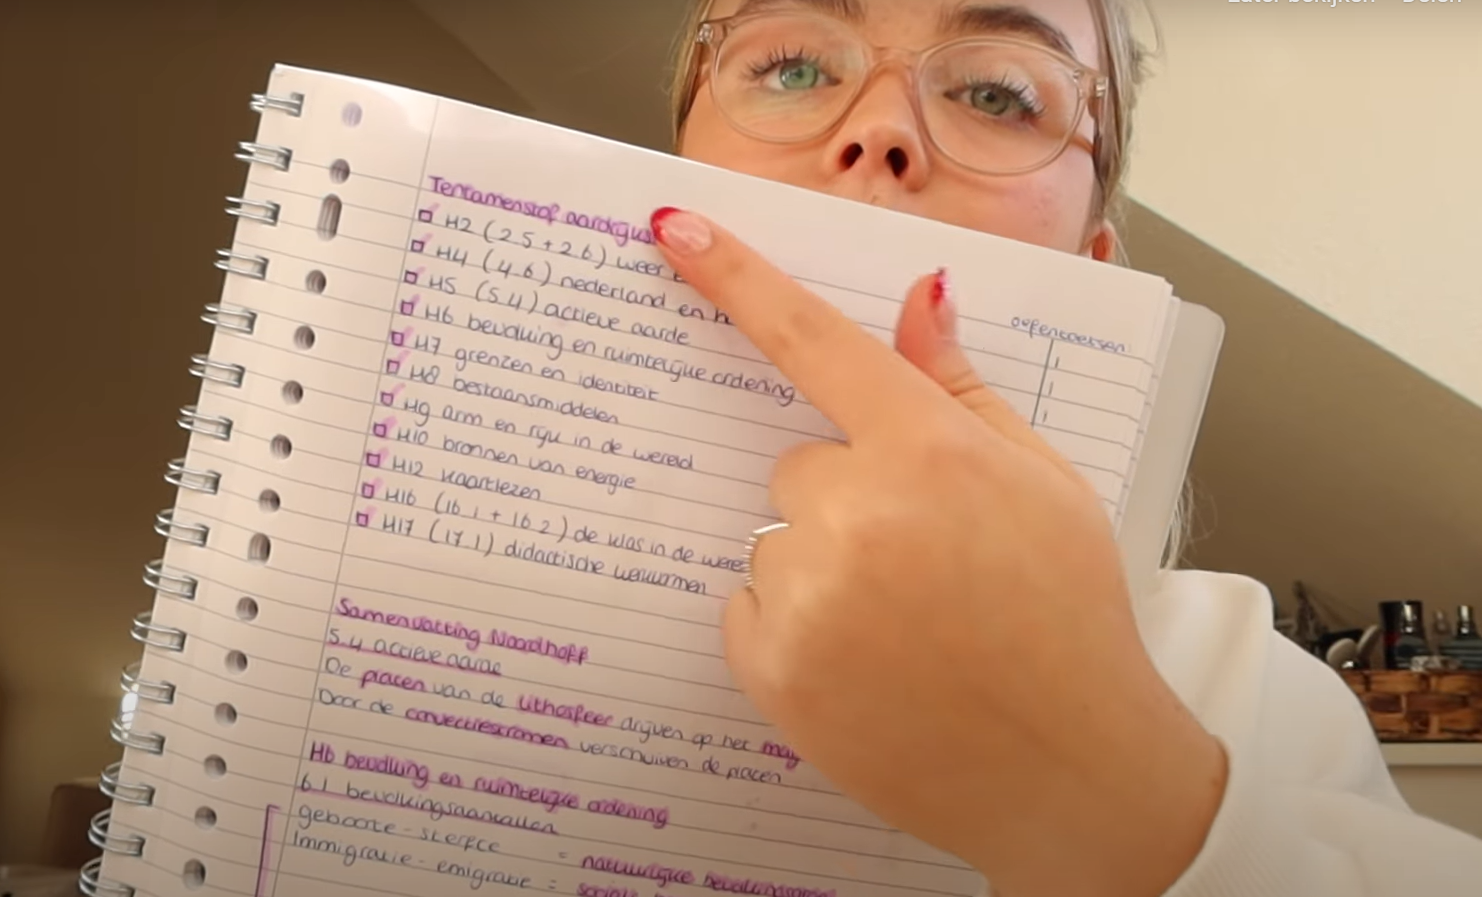 Later bekijken Delen
Tentamenstof aardrijks
H2 (2.5 + 2.6) weer
H4 (4.6) nederland en
H5 (5.4) actieve aarde
H6 bevolking en ruimtelijke ordening
H7 grenzen en identiteit
H8 bestaansmiddelen
H9 arm en rijk in de wereld
H10 bronnen van energie
H12 kaartlezen
H16 (16.1 + 16.2) de klas in de were
H17 (17.1) didactische werkvormen
oefentoetsen:
Samenvatting Noordhoff
5.4 actieve aarde
De platen van de lithosfeer drijven op het
Door de convectiestromen verschuiven de platen
H6 bevolking en ruimtelijke ordening
6.1 bevolkingsaantallen
geboorte - sterfte = natuurlijke
Immigratie - emigratie = sociale